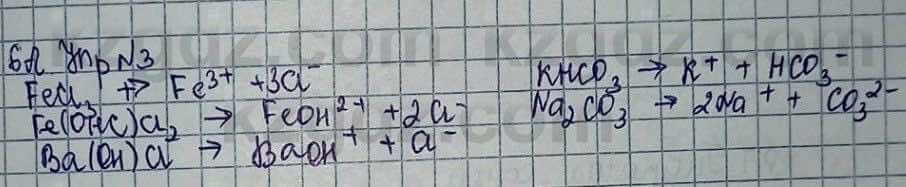 6А Упр N3
FeCl₃ → Fe³⁺ + 3Cl⁻
Fe(OH)Cl₂ → FeOH²⁺ + 2Cl⁻
Ba(OH)Cl → BaOH⁺ + Cl⁻
KHCO₃ → K⁺ + HCO₃⁻
Na₂CO₃ → 2Na⁺ + CO₃²⁻